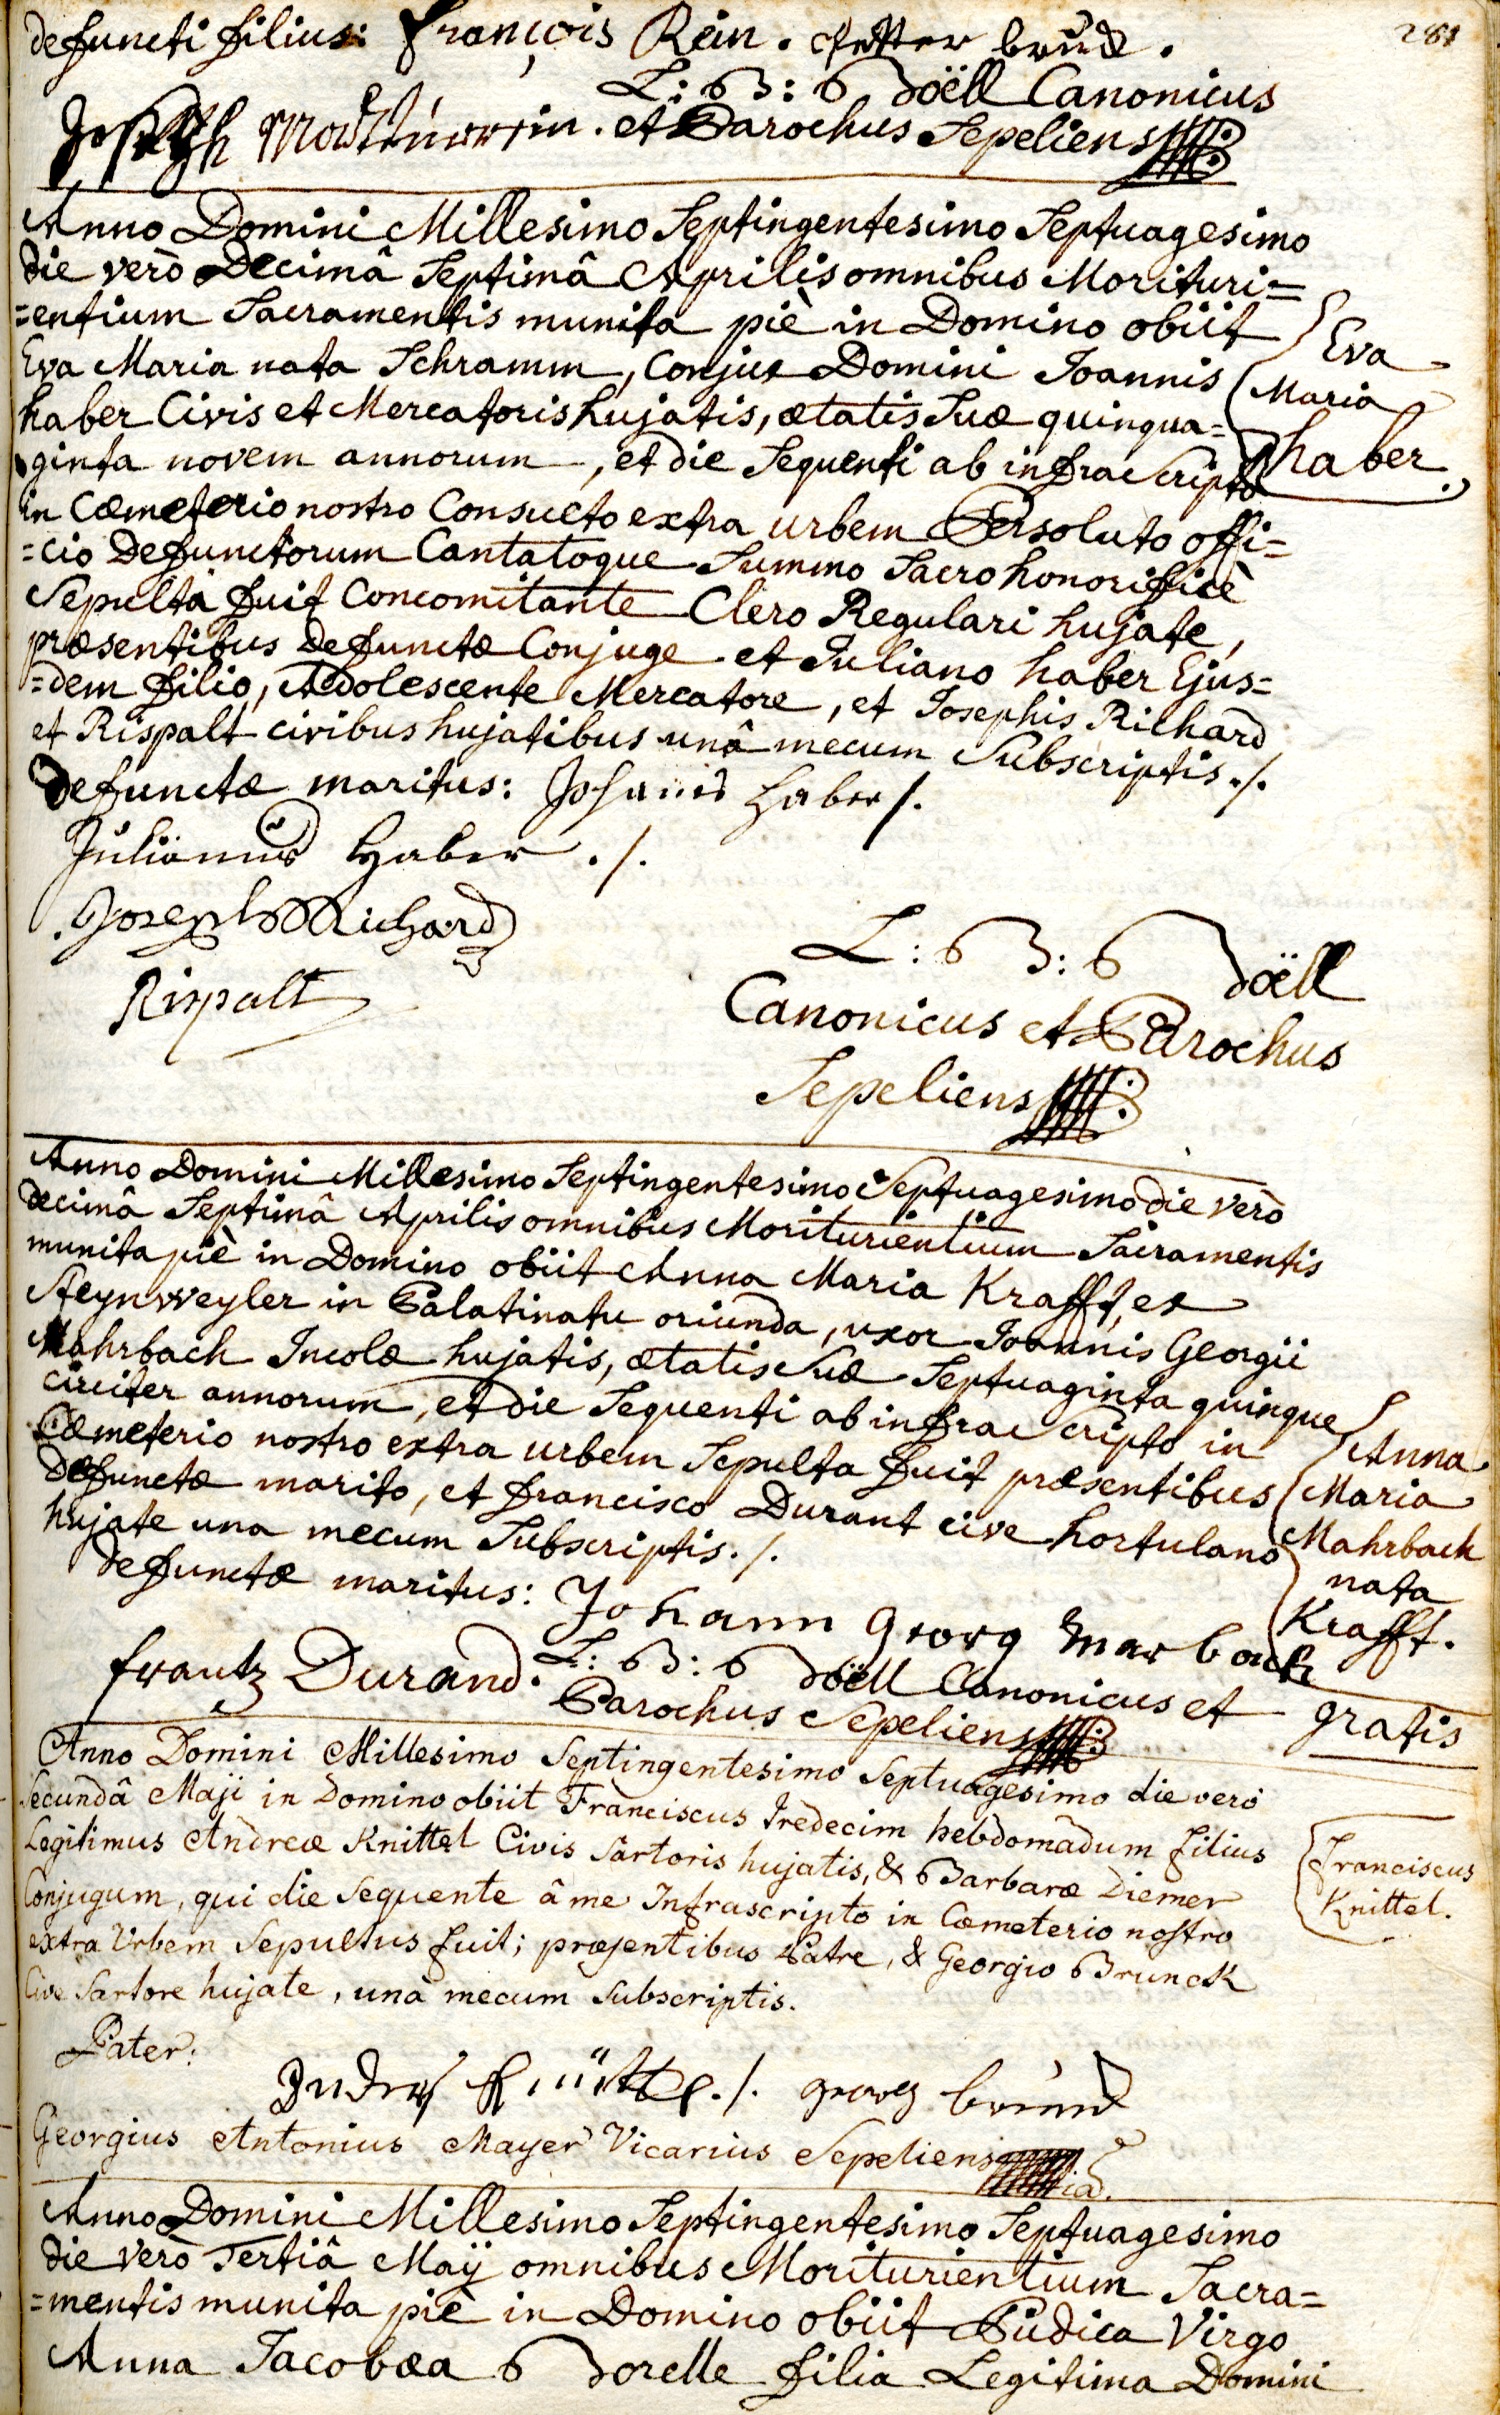 281
defuncti filius: François Rein. petter brück.
L: B: Doëll Canonicus
Joseph et Parochus Sepeliens
Anno Domini Millesimo Septingentesimo Septuagesimo
die verò Decimâ Septimâ Aprilis omnibus Morituri=
=entium Sacramentis munita piè in Domino obiit
Eva Maria nata Schramm, Conjux Domini Joannis
haber Civis et Mercatoris hujatis, ætatis Suæ quinqua=
ginta novem annorum, et die Sequenti ab infrascripto
in Cœmeterio nostro Consueto extra urbem Persoluto offi=
=cio Defunctorum Cantatoque Summo Sacro honorificè
Sepulta fuit Concomitante Clero Regulari hujate,
præsentibus Defunctæ Conjuge et Juliano haber Ejus=
=dem filio, Adolescente Mercatore, et Josephis Richard
et Rispalt civibus hujatibus unâ mecum Subscriptis ./.
Eva
Maria
haber.
Defunctæ maritus: Johannes Haber /.
Julianus Haber ./.
Joseph Richard
Rispalt
L: B: Doëll
Canonicus et Parochus
Sepeliens
Anno Domini Millesimo Septingentesimo Septuagesimo die verò
decimâ Septimâ Aprilis omnibus Moriturientium Sacramentis
munita piè in Domino obiit Anna Maria Krafft, ex
Steynweyler in Palatinatu oriunda, uxor Joannis Georgii
Mahrbach Incolæ hujatis, ætatis Suæ Septuaginta quinque
circiter annorum, et die Sequenti ab infrascripto in
Cœmeterio nostro extra urbem Sepulta fuit præsentibus
Defunctæ marito, et francisco Durant cive hortulano
hujate una mecum Subscriptis ./.
Anna
Maria
Mahrbach
nata
Krafft.
gratis
defunctæ maritus: Johann Georg Marbach
frantz Durand. L: B: Doëll Canonicus et
Parochus Sepeliens
Anno Domini Millesimo Septingentesimo Septuagesimo die verò
Secundâ Maji in Domino obiit Franciscus tredecim hebdomadum filius
Legitimus Andreæ Knittel Civis Sartoris hujatis, & Barbaræ Diemer
Conjugum, qui die Sequente â me Infrascripto in Cœmeterio nostro
extra Urbem Sepultus fuit; præsentibus Patre, & Georgio Brunck
Cive Sartore hujate, unà mecum Subscriptis.
Franciscus
Knittel.
Pater:
Andres Knüttel ./. georg brunck
Georgius Antonius Mayer Vicarius Sepeliens
Anno Domini Millesimo Septingentesimo Septuagesimo
die verò Tertiâ Maÿ omnibus Moriturientium Sacra=
=mentis munita piè in Domino obiit Pudica Virgo
Anna Jacobæa Dorelle filia Legitima Domini